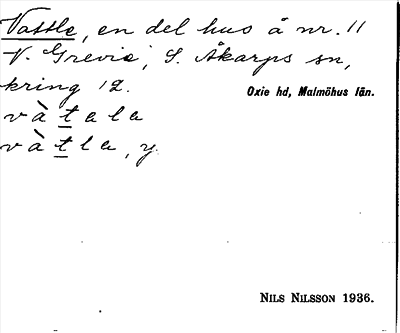 Vattle, en del hus å nr. 11
V. Grevie, S. Åkarps sn,
kring 12.
Oxie hd, Malmöhus län.
vàtala
vàtla, y.
NILS NILSSON 1936.